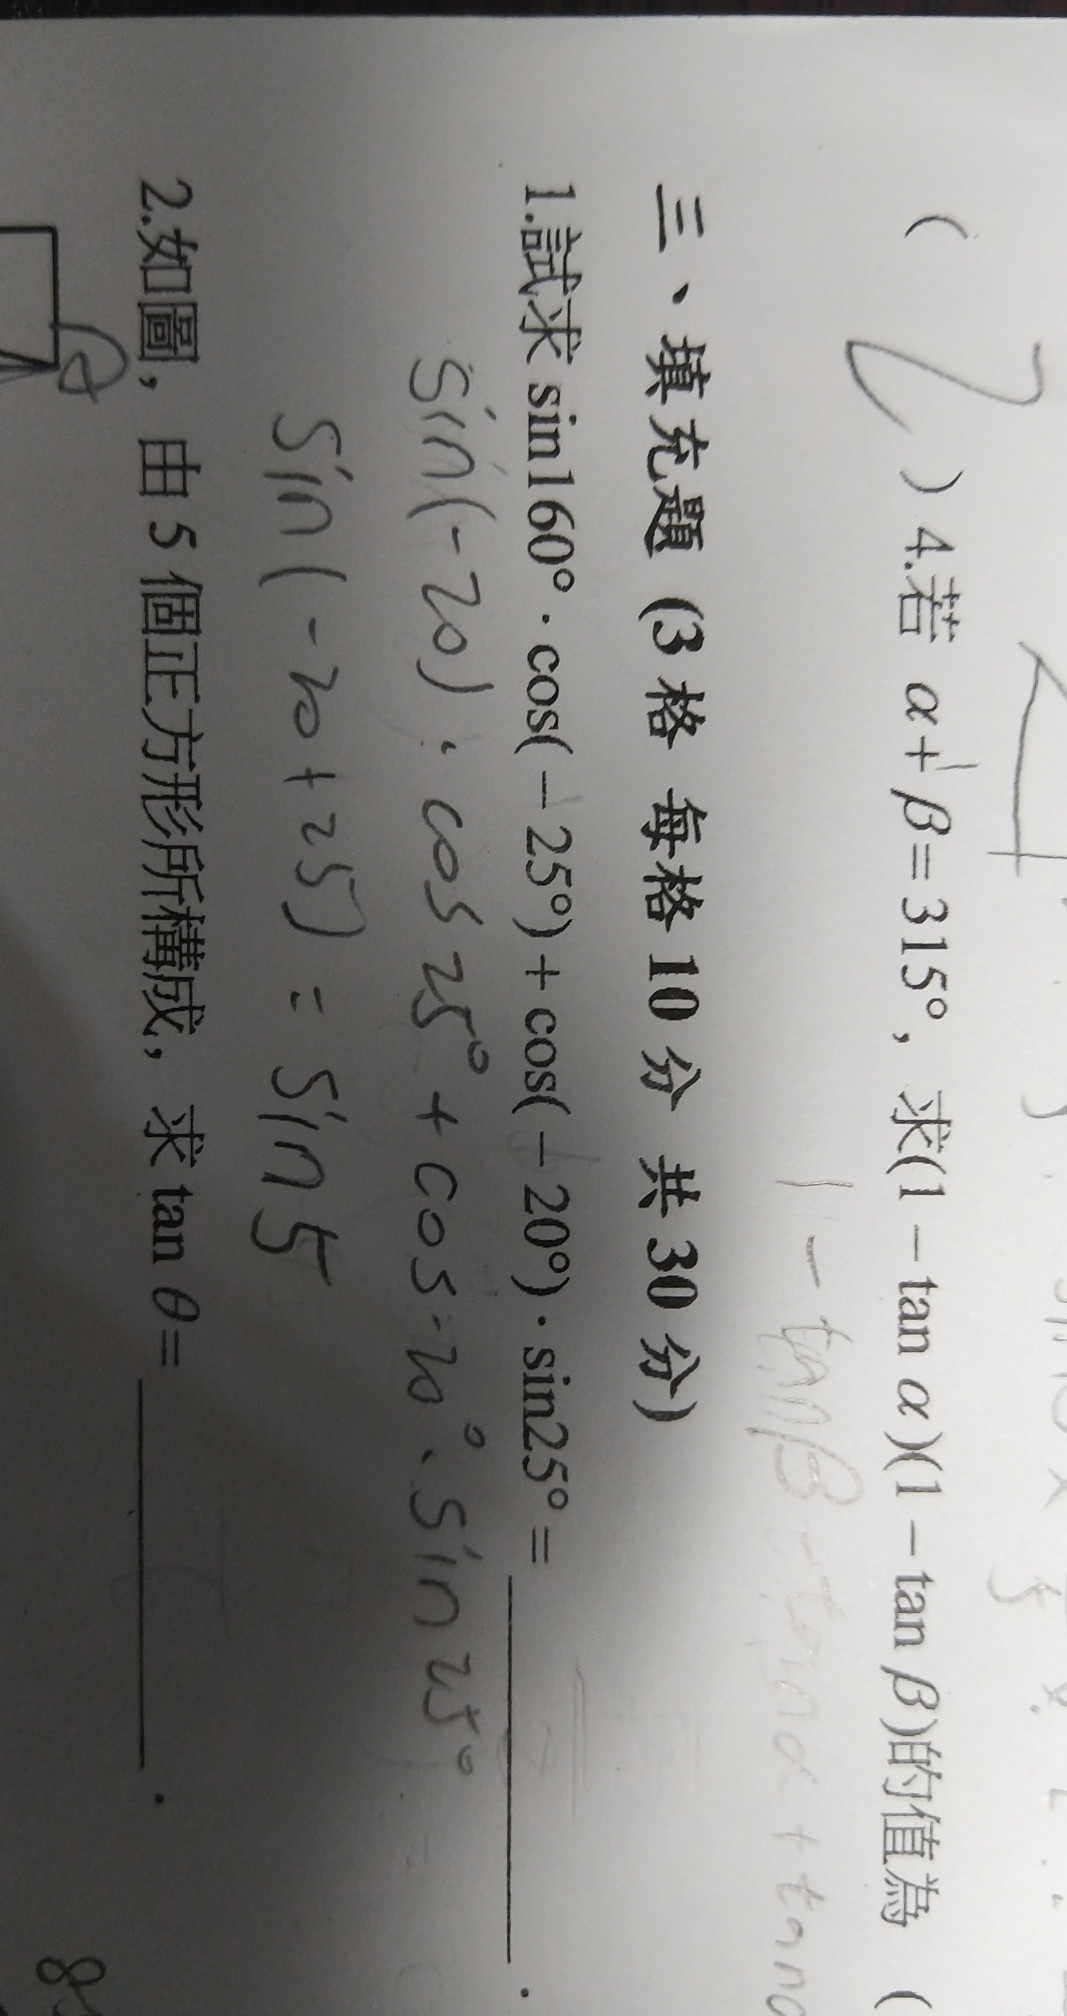 ( 2 ) 4.若 α+β=315°, 求(1-tan α)(1-tan β)的值為 (
1-tanβ-tanα+tanα
三、填充題 (3 格 每格 10 分 共 30 分)
1.試求 sin160°·cos(-25°)+cos(-20°)·sin25°=________.
sin(-20)·cos25°+cos-20°·sin25°
sin(-20+25)=sin5
2.如圖, 由 5 個正方形所構成, 求 tan θ=________.
θ